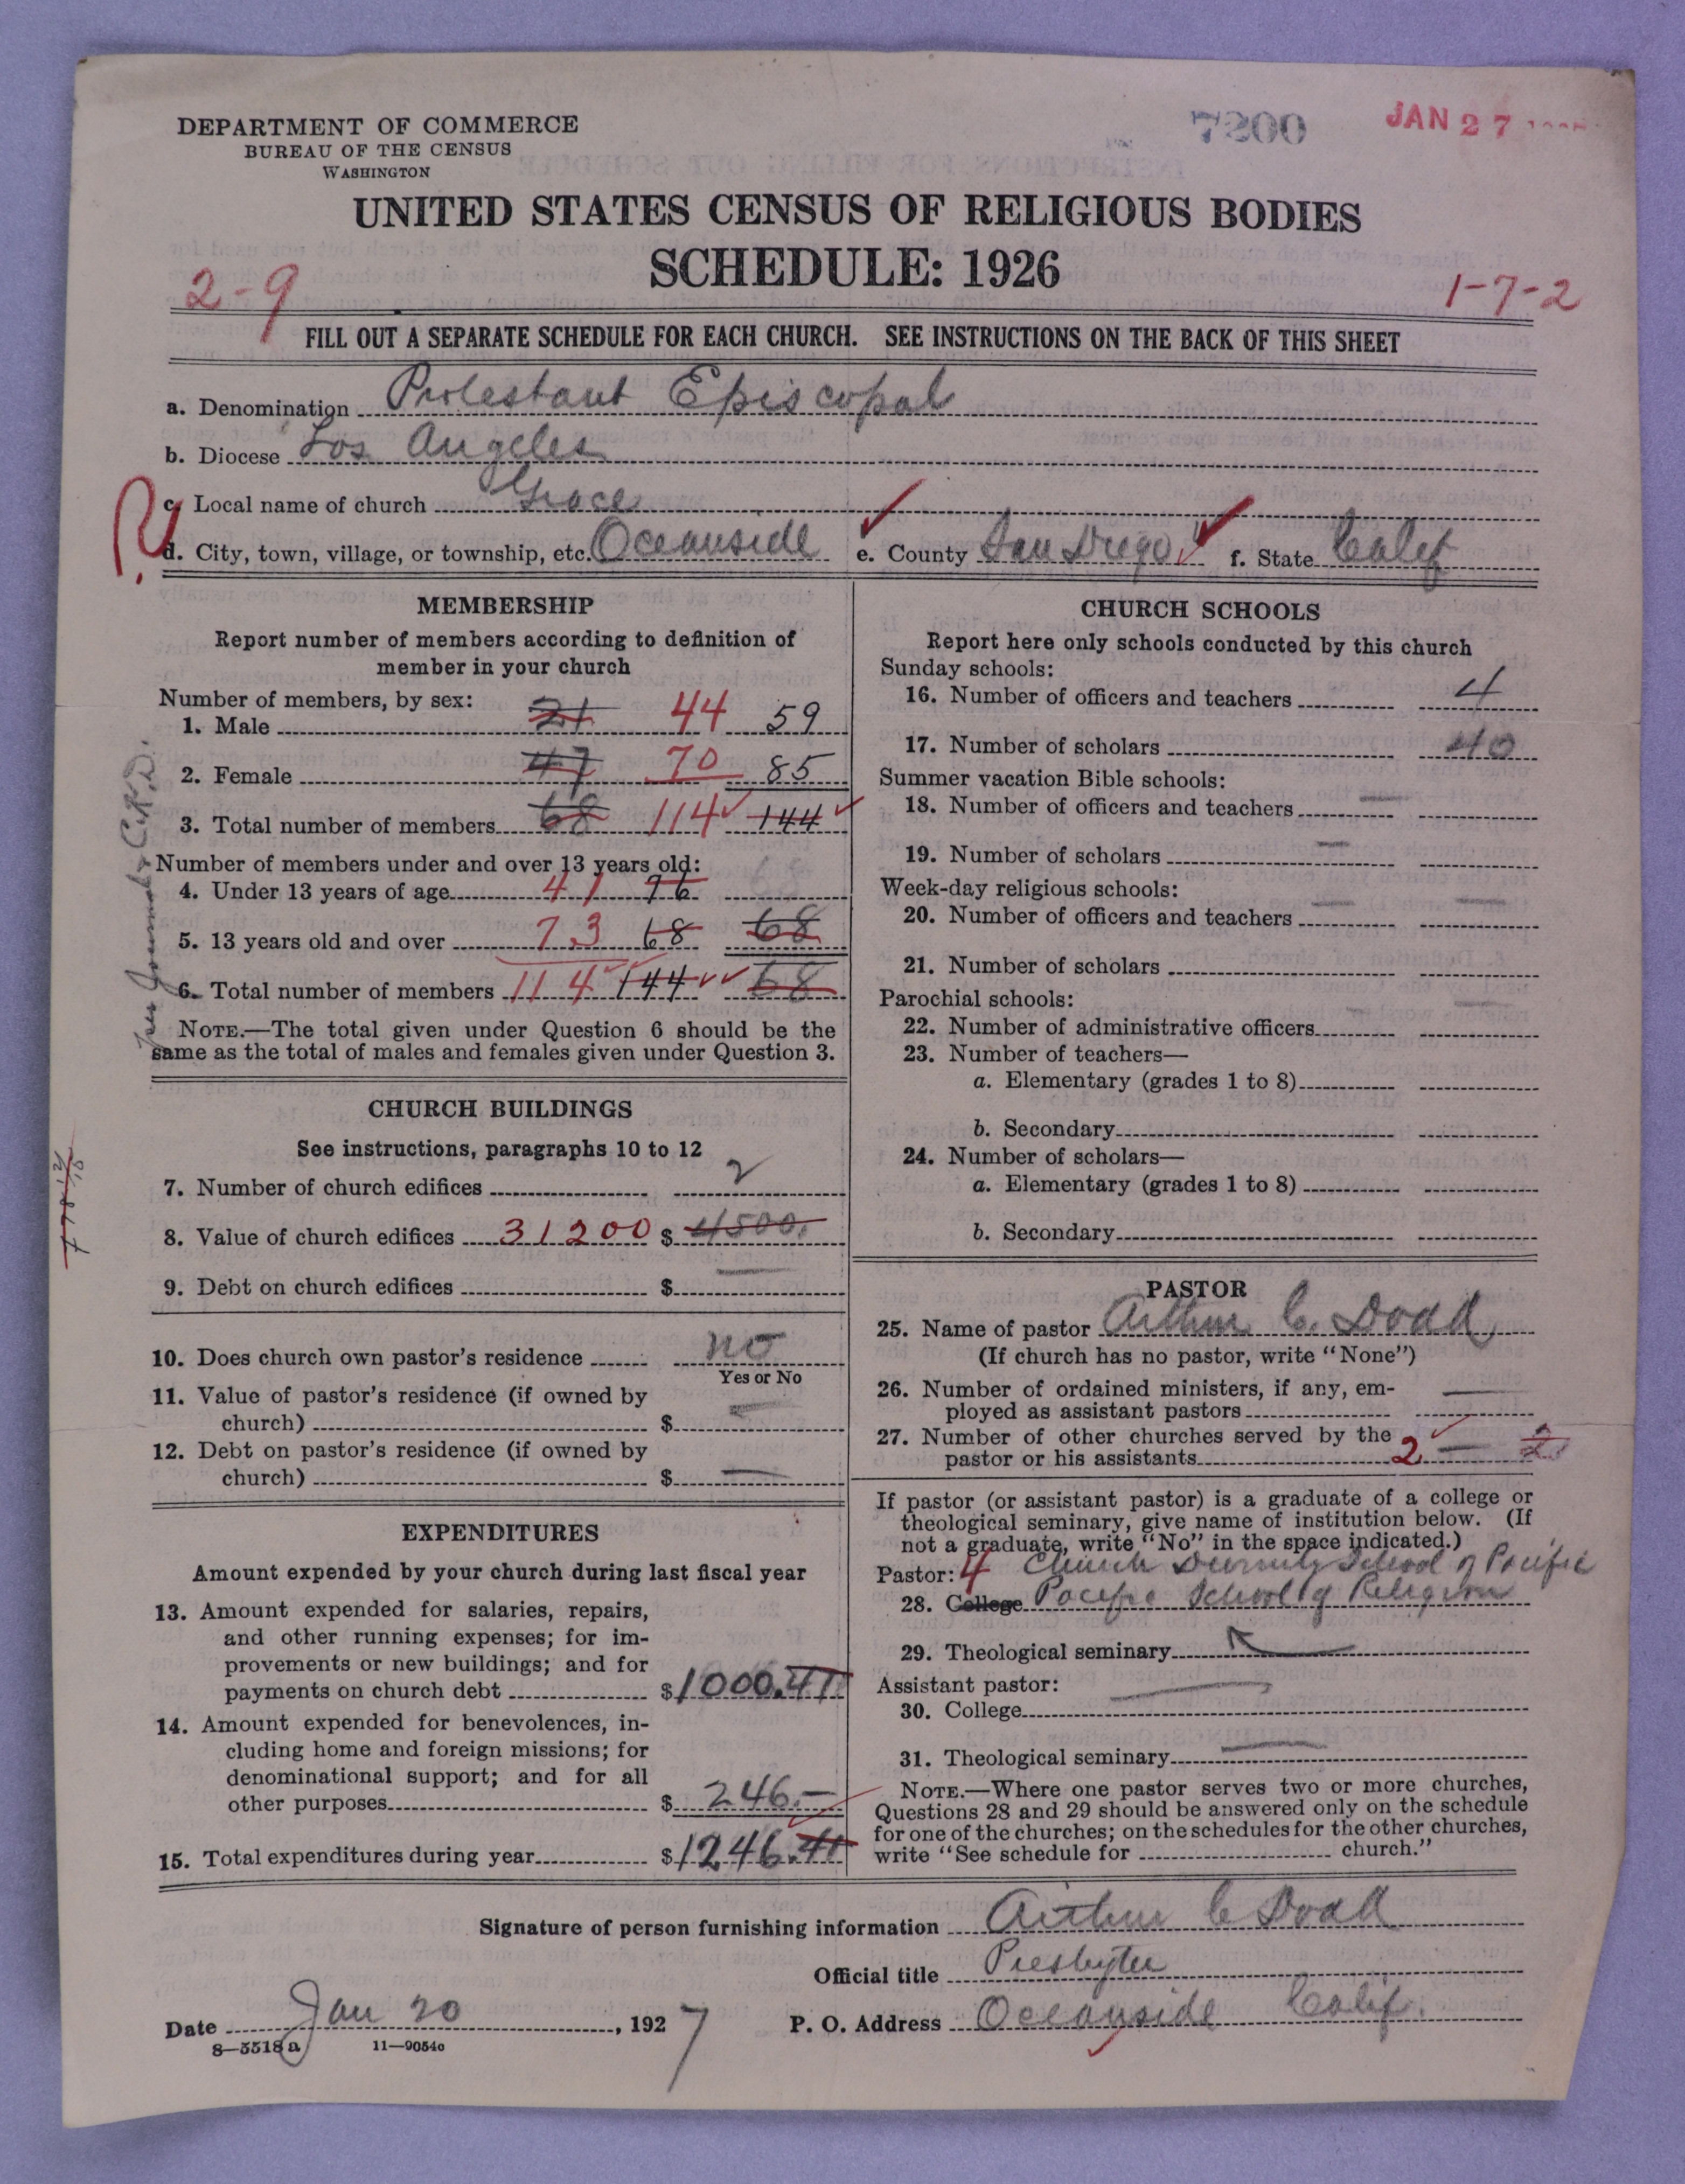 DEPARTMENT OF COMMERCE
BUREAU OF THE CENSUS
WASHINGTON
7200
JAN 27
UNITED STATES CENSUS OF RELIGIOUS BODIES
SCHEDULE: 1926
2-9
1-7-2
FILL OUT A SEPARATE SCHEDULE FOR EACH CHURCH. SEE INSTRUCTIONS ON THE BACK OF THIS SHEET
a. Denomination Protestant Episcopal
b. Diocese Los Angeles
c. Local name of church Grace
d. City, town, village, or township, etc. Oceanside e. County San Diego f. State Calif
MEMBERSHIP
Report number of members according to definition of
member in your church
Number of members, by sex:
1. Male 21 44 59
2. Female 47 70 85
3. Total number of members 68 114 144
Number of members under and over 13 years old:
4. Under 13 years of age 41 76
5. 13 years old and over 73 68 68
6. Total number of members 114 144 68
NOTE.—The total given under Question 6 should be the
same as the total of males and females given under Question 3.
CHURCH BUILDINGS
See instructions, paragraphs 10 to 12
7. Number of church edifices 2
8. Value of church edifices 31200 $ 4500.
9. Debt on church edifices $ —
10. Does church own pastor's residence no
Yes or No
11. Value of pastor's residence (if owned by
church) $ —
12. Debt on pastor's residence (if owned by
church) $ —
EXPENDITURES
Amount expended by your church during last fiscal year
13. Amount expended for salaries, repairs,
and other running expenses; for im-
provements or new buildings; and for
payments on church debt $1000.41
14. Amount expended for benevolences, in-
cluding home and foreign missions; for
denominational support; and for all
other purposes $ 246.—
15. Total expenditures during year $1246.41
CHURCH SCHOOLS
Report here only schools conducted by this church
Sunday schools:
16. Number of officers and teachers 4
17. Number of scholars 40
Summer vacation Bible schools:
18. Number of officers and teachers —
19. Number of scholars —
Week-day religious schools:
20. Number of officers and teachers — —
21. Number of scholars
Parochial schools:
22. Number of administrative officers — —
23. Number of teachers—
a. Elementary (grades 1 to 8)
b. Secondary
24. Number of scholars—
a. Elementary (grades 1 to 8)
b. Secondary
PASTOR
25. Name of pastor Arthur C. Dodd
(If church has no pastor, write "None")
26. Number of ordained ministers, if any, em-
ployed as assistant pastors —
27. Number of other churches served by the
pastor or his assistants 2 — 2
If pastor (or assistant pastor) is a graduate of a college or
theological seminary, give name of institution below. (If
not a graduate, write "No" in the space indicated.)
Pastor: 4 Church Divinity School of Pacific
28. College Pacific School of Religion
29. Theological seminary
Assistant pastor: —
30. College
31. Theological seminary —
NOTE.—Where one pastor serves two or more churches,
Questions 28 and 29 should be answered only on the schedule
for one of the churches; on the schedules for the other churches,
write "See schedule for church."
Signature of person furnishing information Arthur C Dodd
Official title Presbyter
Date Jan 20, 1927 P. O. Address Oceanside Calif.
8—5518a 11—9054c